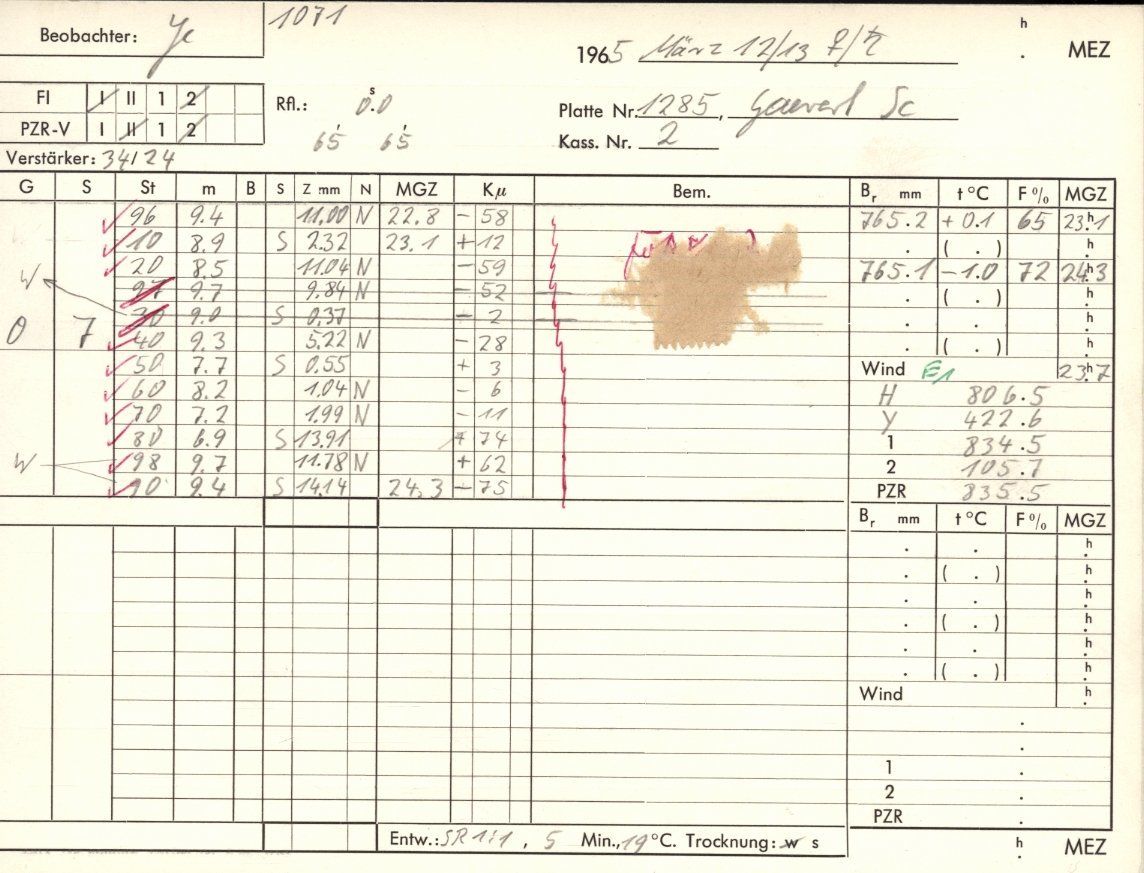 Beobachter: Je
1071
h
1965 März 12/13 ♀/♄ . MEZ
FI I II 1 2
PZR-V I II 1 2
Rfl.: 0.ˢ0
65' 65'
Platte Nr. 1285, Gevaert Sc
Kass. Nr. 2
Verstärker: 34/24
G S St m B S Z mm N MGZ Kμ Bem. Bᵣ mm t °C F % MGZ
96 9.4 11.00 N 22.8 - 58 765.2 + 0.1 65 23ʰ.1
10 8.9 S 2.32 23.1 + 12 . ( . ) h.
20 8.5 11.04 N - 59 765.1 - 1.0 72 24ʰ.3
W 97 9.7 9.84 N - 52 . ( . ) h.
30 9.0 S 0.37 - 2 . . h.
0 7 40 9.3 5.22 N - 28 . ( . ) h.
50 7.7 S 0.55 + 3 Wind E1 23ʰ.7
60 8.2 1.04 N - 6 H 806.5
70 7.2 1.99 N - 11 Y 422.6
80 6.9 S 13.91 + 74 1 834.5
W 98 9.7 11.78 N + 62 2 105.7
90 9.4 S 14.14 24.3 - 75 PZR 835.5
Bᵣ mm t °C F % MGZ
. . h.
. ( . ) h.
. . h.
. ( . ) h.
. . h.
. ( . ) h.
Wind h.
.
.
1 .
2 .
PZR .
Entw.: SR 1:1, 5 Min., 19 °C. Trocknung: w s
h
. MEZ